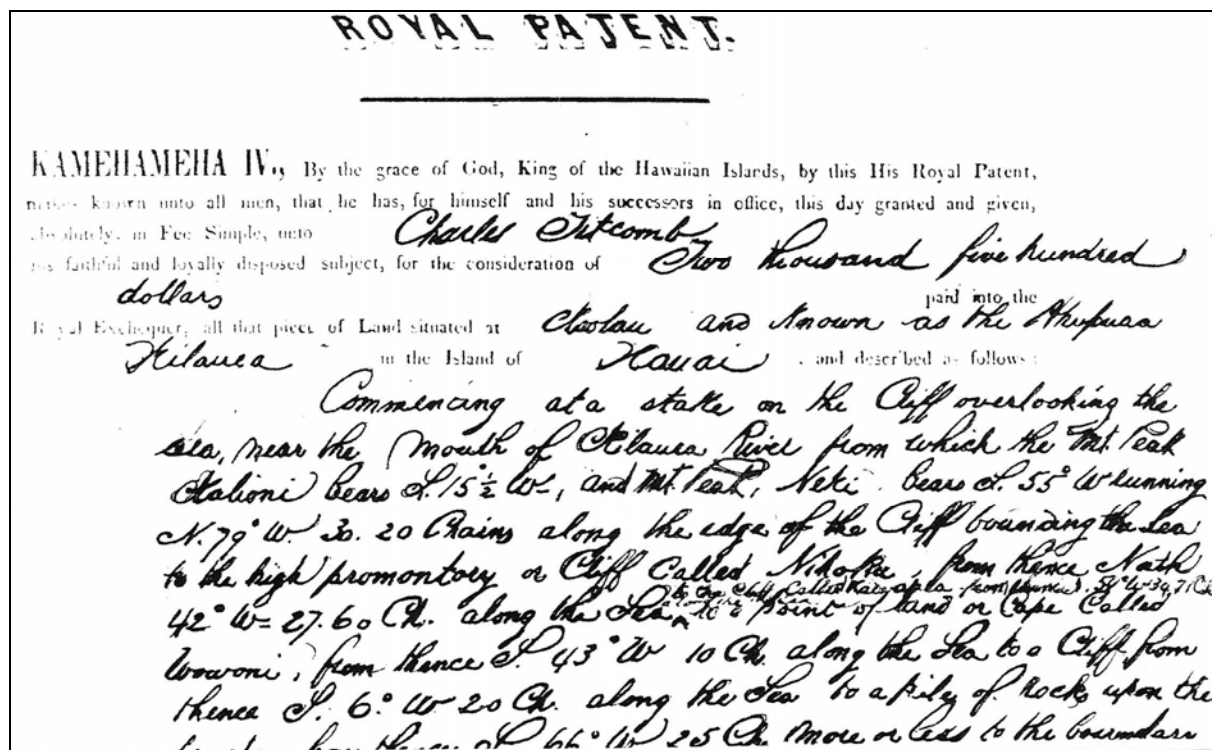 ROYAL PATENT.
KAMEHAMEHA IV., By the grace of God, King of the Hawaiian Islands, by this His Royal Patent,
makes known unto all men, that he has, for himself and his successors in office, this day granted and given,
absolutely, in Fee Simple, unto Charles Titcomb
his faithful and loyally disposed subject, for the consideration of Two thousand five hundred
dollars paid into the
Royal Exchequer, all that piece of Land situated at Koolau and known as the Ahupuaa
Kilauea in the Island of Kauai , and described as follows:
Commencing at a stake on the Cliff overlooking the
sea, near the mouth of Kilauea River from which the Mt. Peak
bears S. 15½° W, and Mt. Peak, bears S. 55° W running
N. 79° W. 30.20 Chains along the edge of the Cliff bounding the Sea
to the high promontory or Cliff Called from thence North
to the Cliff Called from thence
42° W= 27.60 Ch. along the Sea to a point of land or Cape Called
from thence S. 43° W 10 Ch. along the Sea to a Cliff from
thence S. 6° W 20 Ch. along the Sea to a pile of Rocks upon the
thence S 66° W 25 Ch. more or less to the boundary